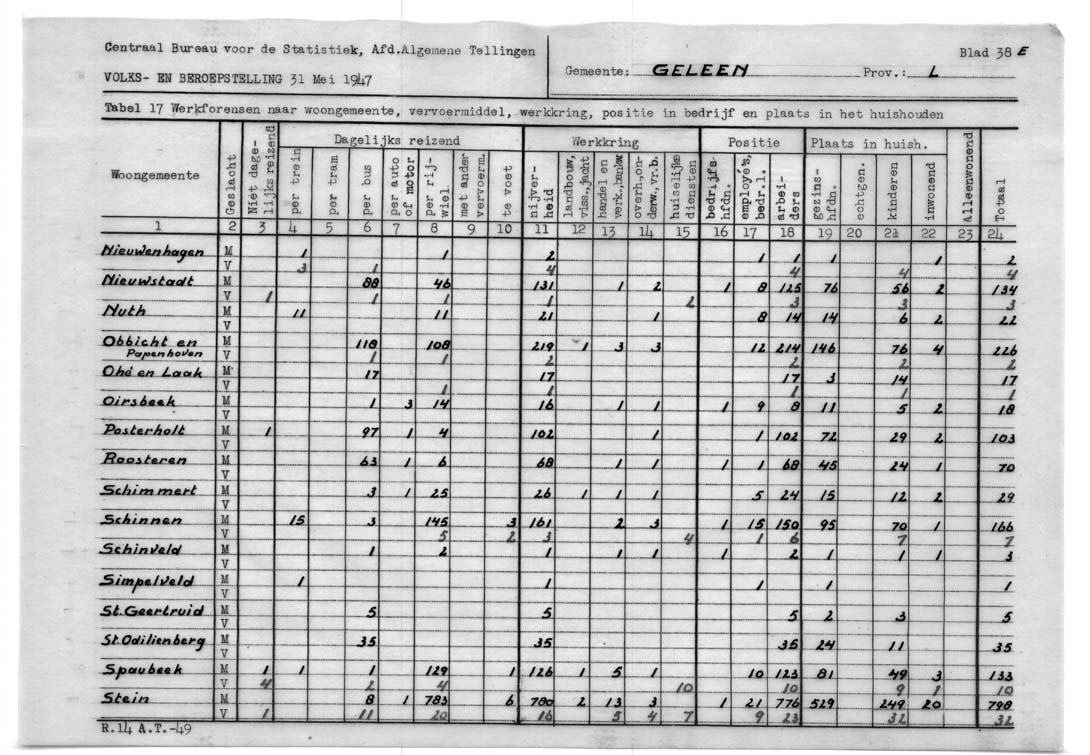 Centraal Bureau voor de Statistiek, Afd.Algemene Tellingen
Blad 38 E
VOLKS- EN BEROEPSTELLING 31 Mei 1947
Gemeente: GELEEN Prov.: L
Tabel 17 Werkforensen naar woongemeente, vervoermiddel, werkkring, positie in bedrijf en plaats in het huishouden
Woongemeente | Geslacht | Niét dage-lijks reizend | Dagelijks reizend: per trein | per tram | per bus | per auto of motor | per rij-wiel | met ander vervoerm. | te voet | Werkkring: nijver-heid | landbouw, viss.,jacht | handel en verk.,bankw. | overh.,on-derw.,vr.b. | huiselijke diensten | Positie: bedrijfs-hfdn. | employé's, bedr.l. | arbei-ders | Plaats in huish.: gezins-hfdn. | echtgen. | kinderen | inwonend | Alleenwonend | Totaal
1 | 2 | 3 | 4 | 5 | 6 | 7 | 8 | 9 | 10 | 11 | 12 | 13 | 14 | 15 | 16 | 17 | 18 | 19 | 20 | 21 | 22 | 23 | 24
Nieuwenhagen | M | | 1 | | | | 1 | | | 2 | | | | | | 1 | 1 | 1 | | | 1 | | 2
V | | 3 | | 1 | | | | | 4 | | | | | | | 4 | | | 4 | | | 4
Nieuwstadt | M | | | | 88 | | 46 | | | 131 | | 1 | 2 | | 1 | 8 | 125 | 76 | | 56 | 2 | | 134
V | 1 | | | 1 | | 1 | | | 1 | | | | 2 | | | 3 | | | 3 | | | 3
Nuth | M | | 11 | | | | 11 | | | 21 | | | 1 | | | 8 | 14 | 14 | | 6 | 2 | | 22
V
Obbicht en | M | | | | 118 | | 108 | | | 219 | 1 | 3 | 3 | | | 12 | 214 | 146 | | 76 | 4 | | 226
Papenhoven | V | | | | 1 | | 1 | | | 2 | | | | | | | 2 | | | 2 | | | 2
Ohé en Laak | M | | | | 17 | | | | | 17 | | | | | | | 17 | 3 | | 14 | | | 17
V | | | | | | 1 | | | 1 | | | | | | | 1 | | | 1 | | | 1
Oirsbeek | M | | | | 1 | 3 | 14 | | | 16 | | 1 | 1 | | 1 | 9 | 8 | 11 | | 5 | 2 | | 18
V
Posterholt | M | 1 | | | 97 | 1 | 4 | | | 102 | | | 1 | | | 1 | 102 | 72 | | 29 | 2 | | 103
V
Roosteren | M | | | | 63 | 1 | 6 | | | 68 | | 1 | 1 | | 1 | 1 | 68 | 45 | | 24 | 1 | | 70
V
Schimmert | M | | | | 3 | 1 | 25 | | | 26 | 1 | 1 | 1 | | | 5 | 24 | 15 | | 12 | 2 | | 29
V
Schinnen | M | | 15 | | 3 | | 145 | | 3 | 161 | | 2 | 3 | | 1 | 15 | 150 | 95 | | 70 | 1 | | 166
V | | | | | | 5 | | 2 | 3 | | | | 4 | | 1 | 6 | | | 7 | | | 7
Schinveld | M | | | | 1 | | 2 | | | 1 | | 1 | 1 | | 1 | | 2 | 1 | | 1 | 1 | | 3
V
Simpelveld | M | | 1 | | | | | | | 1 | | | | | | 1 | | 1 | | | | | 1
V
St.Geertruid | M | | | | 5 | | | | | 5 | | | | | | | 5 | 2 | | 3 | | | 5
V
St.Odilienberg | M | | | | 35 | | | | | 35 | | | | | | | 35 | 24 | | 11 | | | 35
V
Spaubeek | M | 1 | 1 | | 1 | | 129 | | 1 | 126 | 1 | 5 | 1 | | | 10 | 123 | 81 | | 49 | 3 | | 133
V | 4 | | | 2 | | 4 | | | | | | | 10 | | | 10 | | | 9 | 1 | | 10
Stein | M | | | | 8 | 1 | 783 | | 6 | 780 | 2 | 13 | 3 | | 1 | 21 | 776 | 529 | | 249 | 20 | | 798
V | 1 | | | 11 | | 20 | | | 16 | | 5 | 4 | 7 | | 9 | 23 | | | 32 | | | 32
R.14 A.T.-49